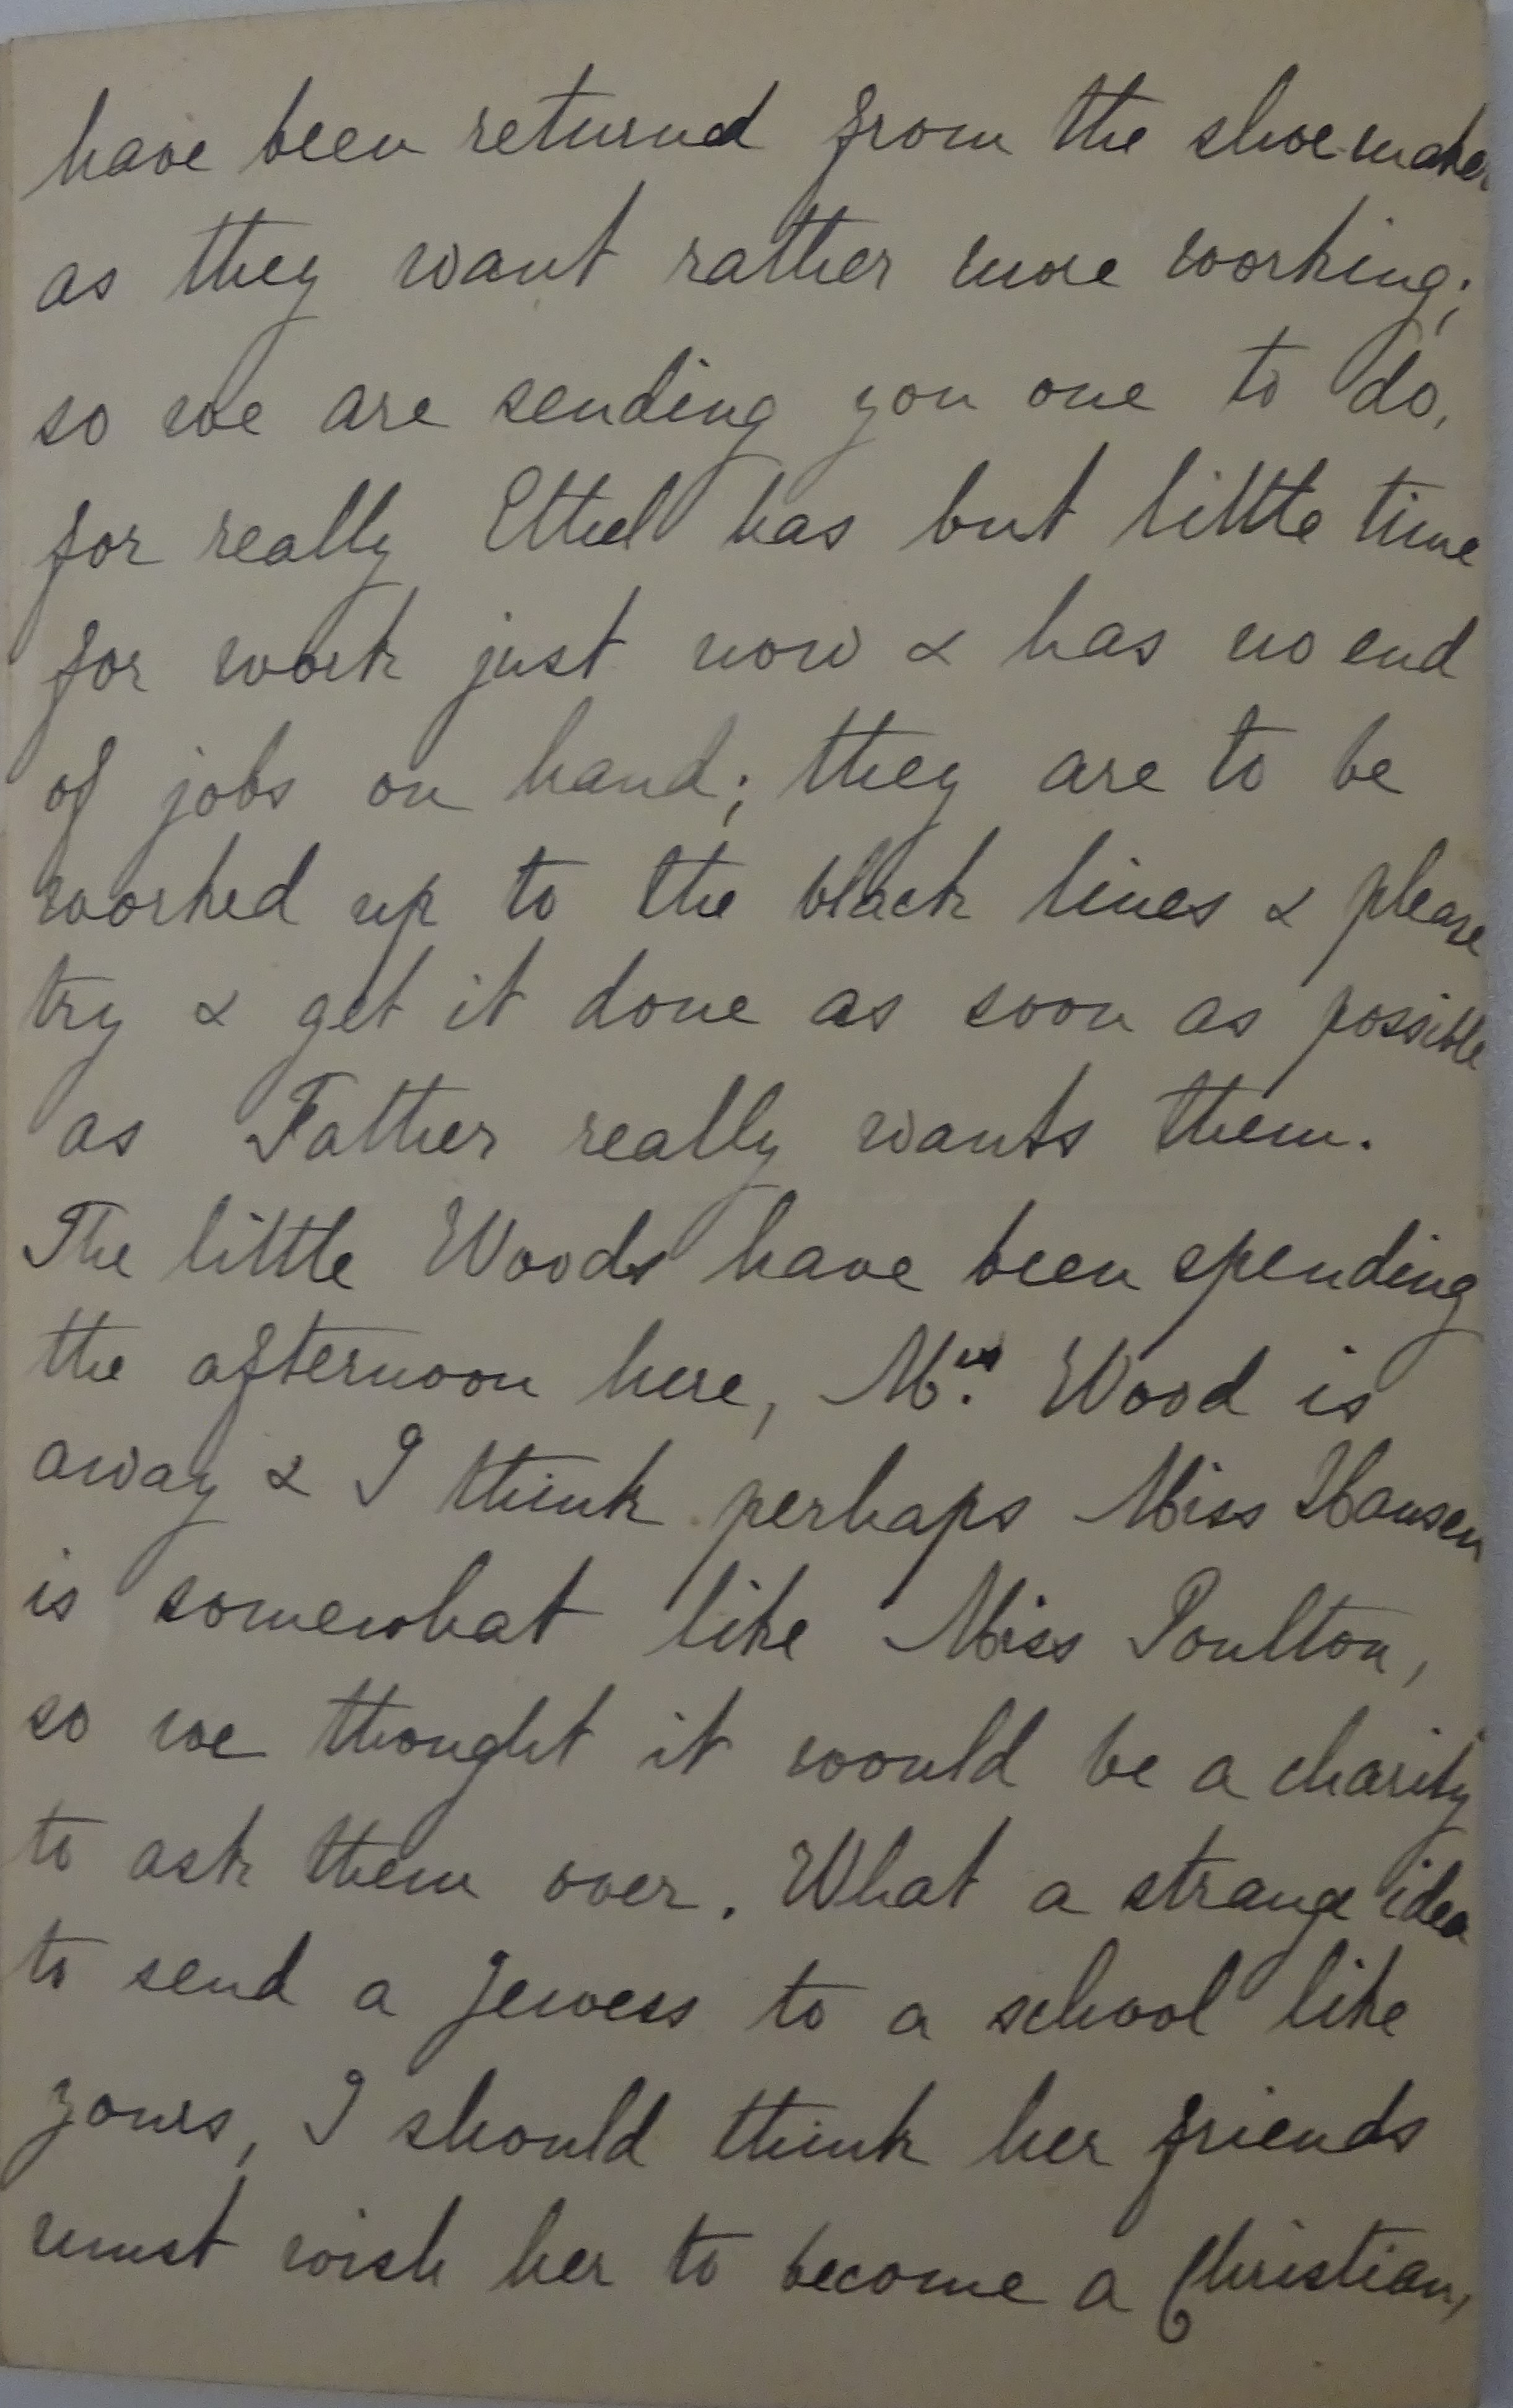 have been returned from the shoemaker
as they want rather more working;
so we are sending you one to do,
for really Ethel has but little time
for work just now & has no end
of jobs on hand; they are to be
worked up to the black lines & please
try & get it done as soon as possible
as Father really wants them.
The little Woods have been spending
the afternoon here, Mrs. Wood is
away & I think perhaps Miss Hansen
is somewhat like Miss Poulton,
so we thought it would be a charity
to ask them over. What a strange idea
to send a Jewess to a school like
yours, I should think her friends
must wish her to become a Christian,